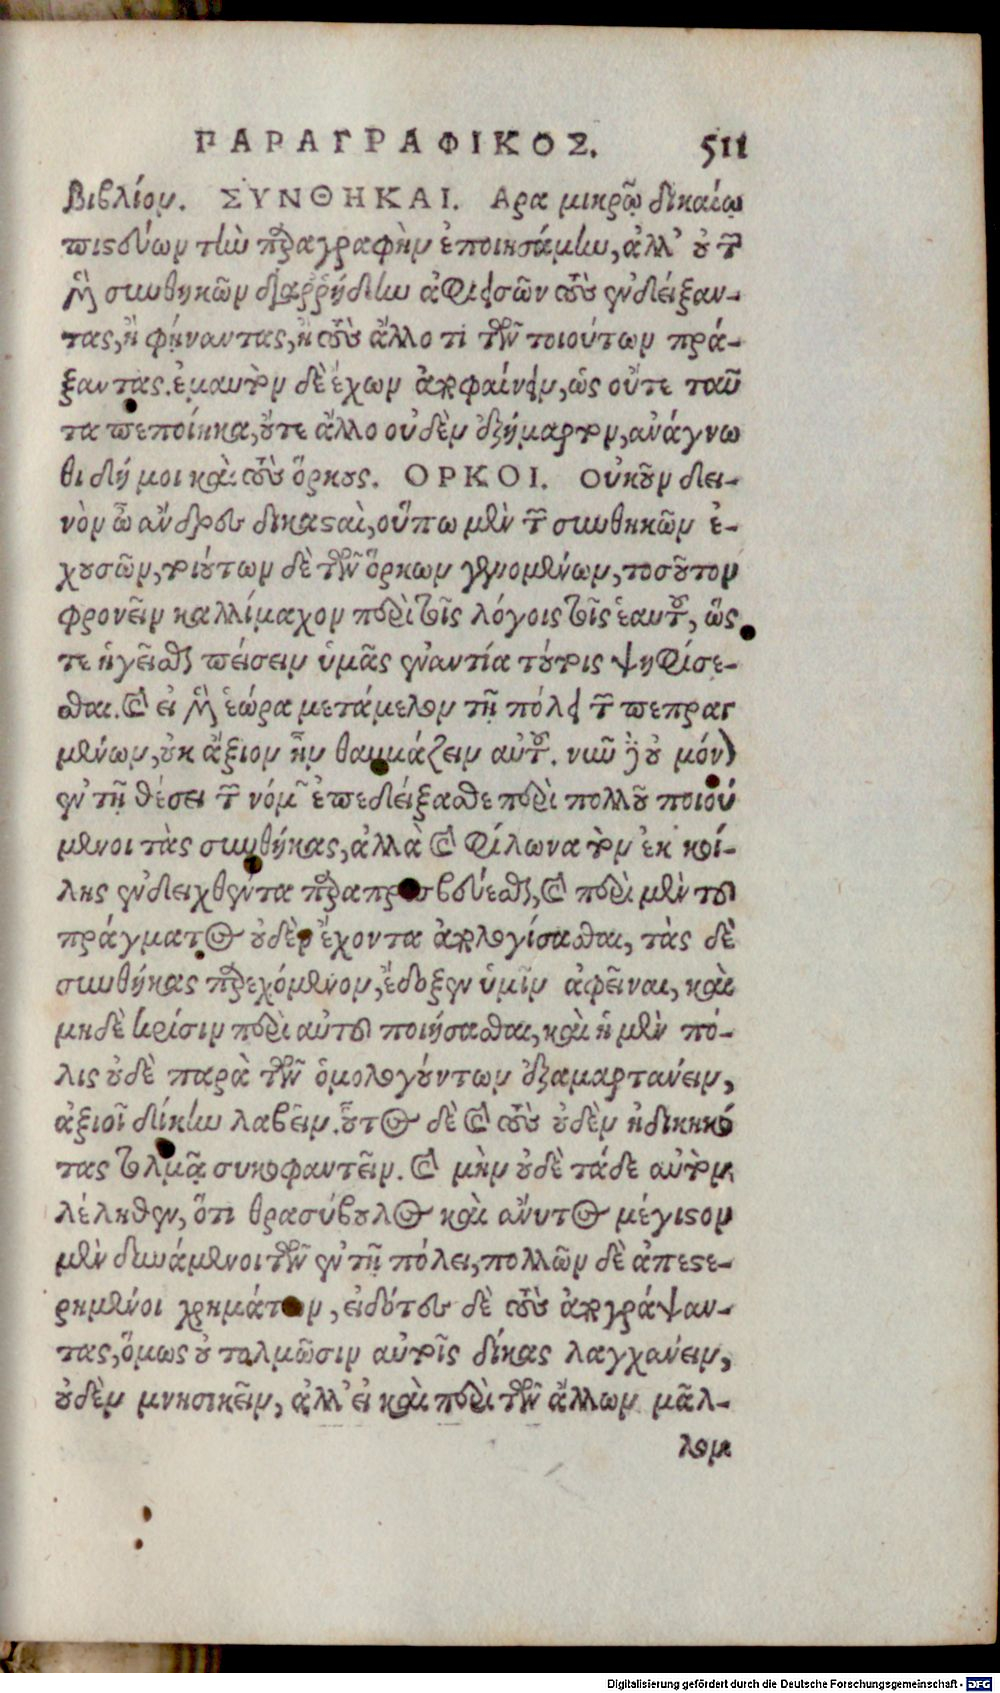 ΠΑΡΑΓΡΑΦΙΚΟΣ. 511
βιβλίον. ΣΥΝΘΗΚΑΙ. Αρα μικρῷ δικαίῳ
πιστεύων τὴν παραγραφὴν ἐποιησάμην, ἀλλ' οὐ τῶν
μὲν συνθηκῶν διαρρήδην ἀφιεισῶν τοὺς ἐνδείξαν-
τας, ἢ φήναντας, ἢ τοὺς ἄλλο τι τῶν τοιούτων πρά-
ξαντας. ἐμαυτὸν δὲ ἔχων ἀποφαίνειν, ὡς οὔτε ταῦ
τα πεποίηκα, οὔτε ἄλλο οὐδὲν ἐξήμαρτον, ἀνάγνω
θι δή μοι καὶ τοὺς ὅρκους. ΟΡΚΟΙ. Οὐκοῦν δει-
νὸν ὦ ἄνδρες δικασταὶ, οὕπω μὲν τῶν συνθηκῶν ἐ-
χουσῶν, τοιούτων δὲ τῶν ὅρκων γενομένων, τοσοῦτον
φρονεῖν καλλίμαχον περὶ τοῖς λόγοις τοῖς ἑαυτοῦ, ὥς
τε ἡγεῖσθαι πείσειν ὑμᾶς ἐναντία τούτοις ψηφίσε-
σθαι. καὶ εἰ μὲν ἑώρα μετάμελον τῇ πόλει τῶν πεπραγ
μένων, οὐκ ἄξιον ἦν θαυμάζειν αὐτοῦ. νῦν δὲ οὐ μόνον
ἐν τῇ θέσει τῶν νόμων ἐπεδείξασθε περὶ πολλοῦ ποιού
μενοι τὰς συνθήκας, ἀλλὰ καὶ φίλωνα τὸν ἐκ κοί-
λης ἐνδειχθέντα παραπρεσβεύεσθαι, καὶ περὶ μὲν τοῦ
πράγματος οὐδὲν ἔχοντα ἀπολογίσασθαι, τὰς δὲ
συνθήκας παρεχόμενον, ἔδοξεν ὑμῖν ἀφεῖναι, καὶ
μηδὲ κρίσιν περὶ αὐτοῦ ποιήσασθαι, καὶ ἡ μὲν πό-
λις οὐδὲ παρὰ τῶν ὁμολογούντων ἐξαμαρτάνειν,
ἀξιοῖ δίκην λαβεῖν. οὗτος δὲ καὶ τοὺς οὐδὲν ἠδικηκό
τας τολμᾷ συκοφαντεῖν. καὶ μὴν οὐδὲ τάδε αὐτὸν
λέληθεν, ὅτι θρασύβουλος καὶ ἄνυτος μέγιστον
μὲν δυνάμενοι τῶν ἐν τῇ πόλει, πολλῶν δὲ ἀπεστε-
ρημένοι χρημάτων, εἰδότες δὲ τοὺς ἀπογράψαν-
τας, ὅμως οὐ τολμῶσιν αὐτοῖς δίκας λαγχάνειν,
οὐδὲν μνησικεῖν, ἀλλ' εἰ καὶ περὶ τῶν ἄλλων μᾶλ-
λον
Digitalisierung gefördert durch die Deutsche Forschungsgemeinschaft - DFG